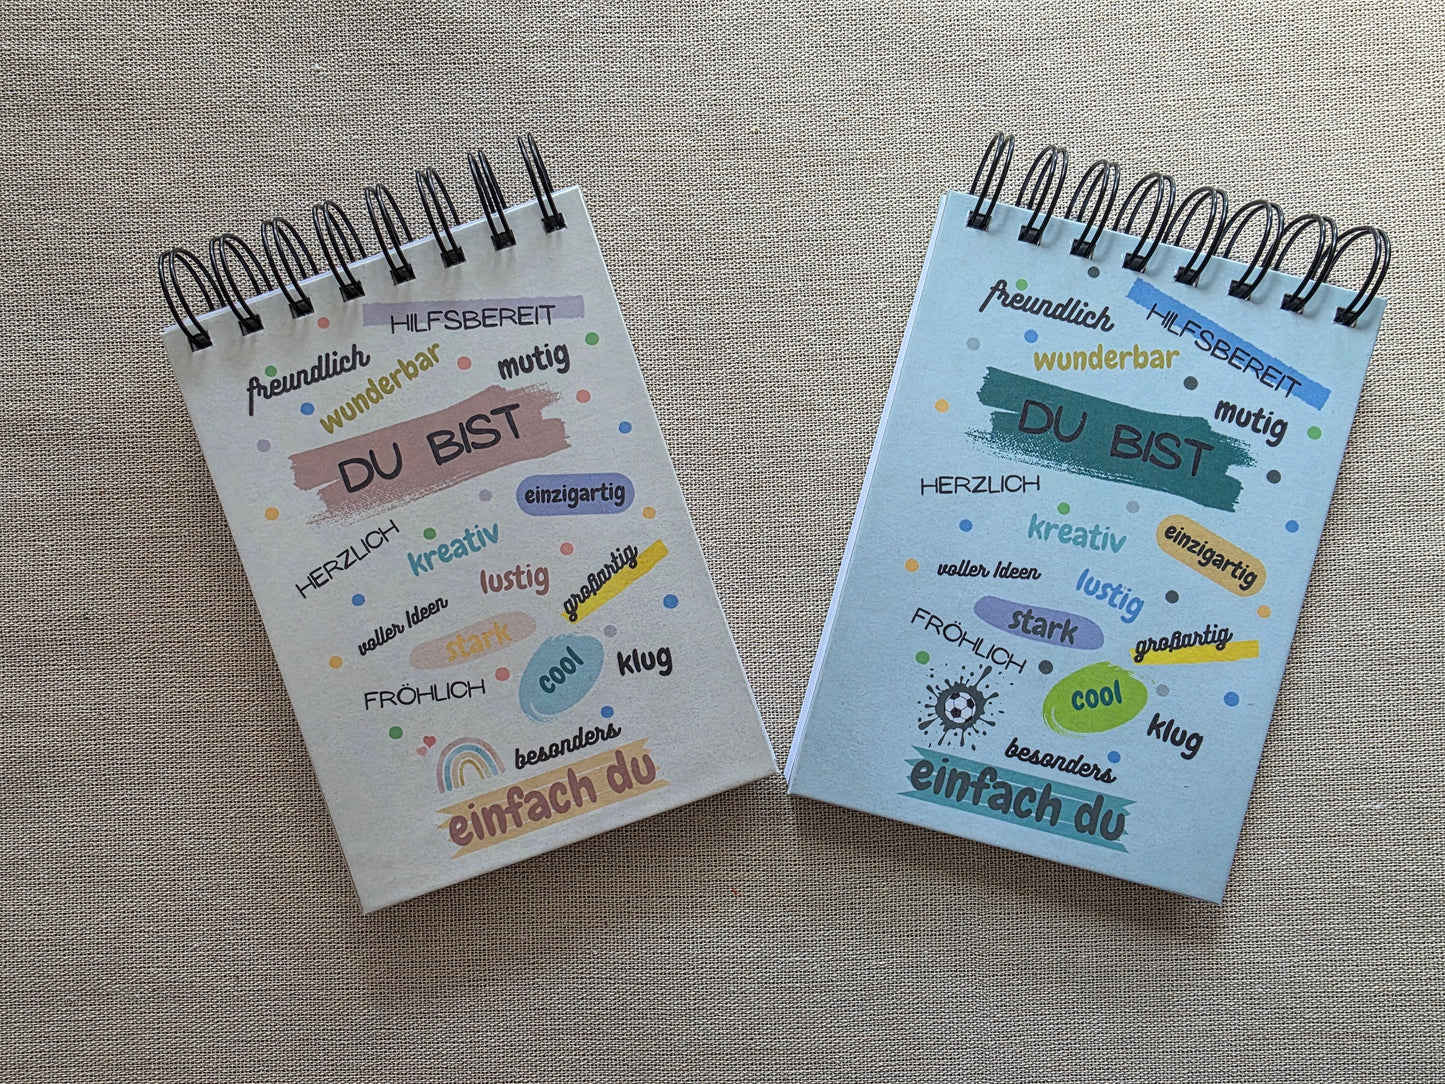 HILFSBEREIT
freundlich
wunderbar
mutig
DU BIST
einzigartig
HERZLICH
kreativ
lustig
großartig
voller Ideen
stark
cool
klug
FRÖHLICH
besonders
einfach du
freundlich
HILFSBEREIT
wunderbar
mutig
DU BIST
HERZLICH
kreativ
einzigartig
voller Ideen
lustig
stark
großartig
FRÖHLICH
cool
klug
besonders
einfach du